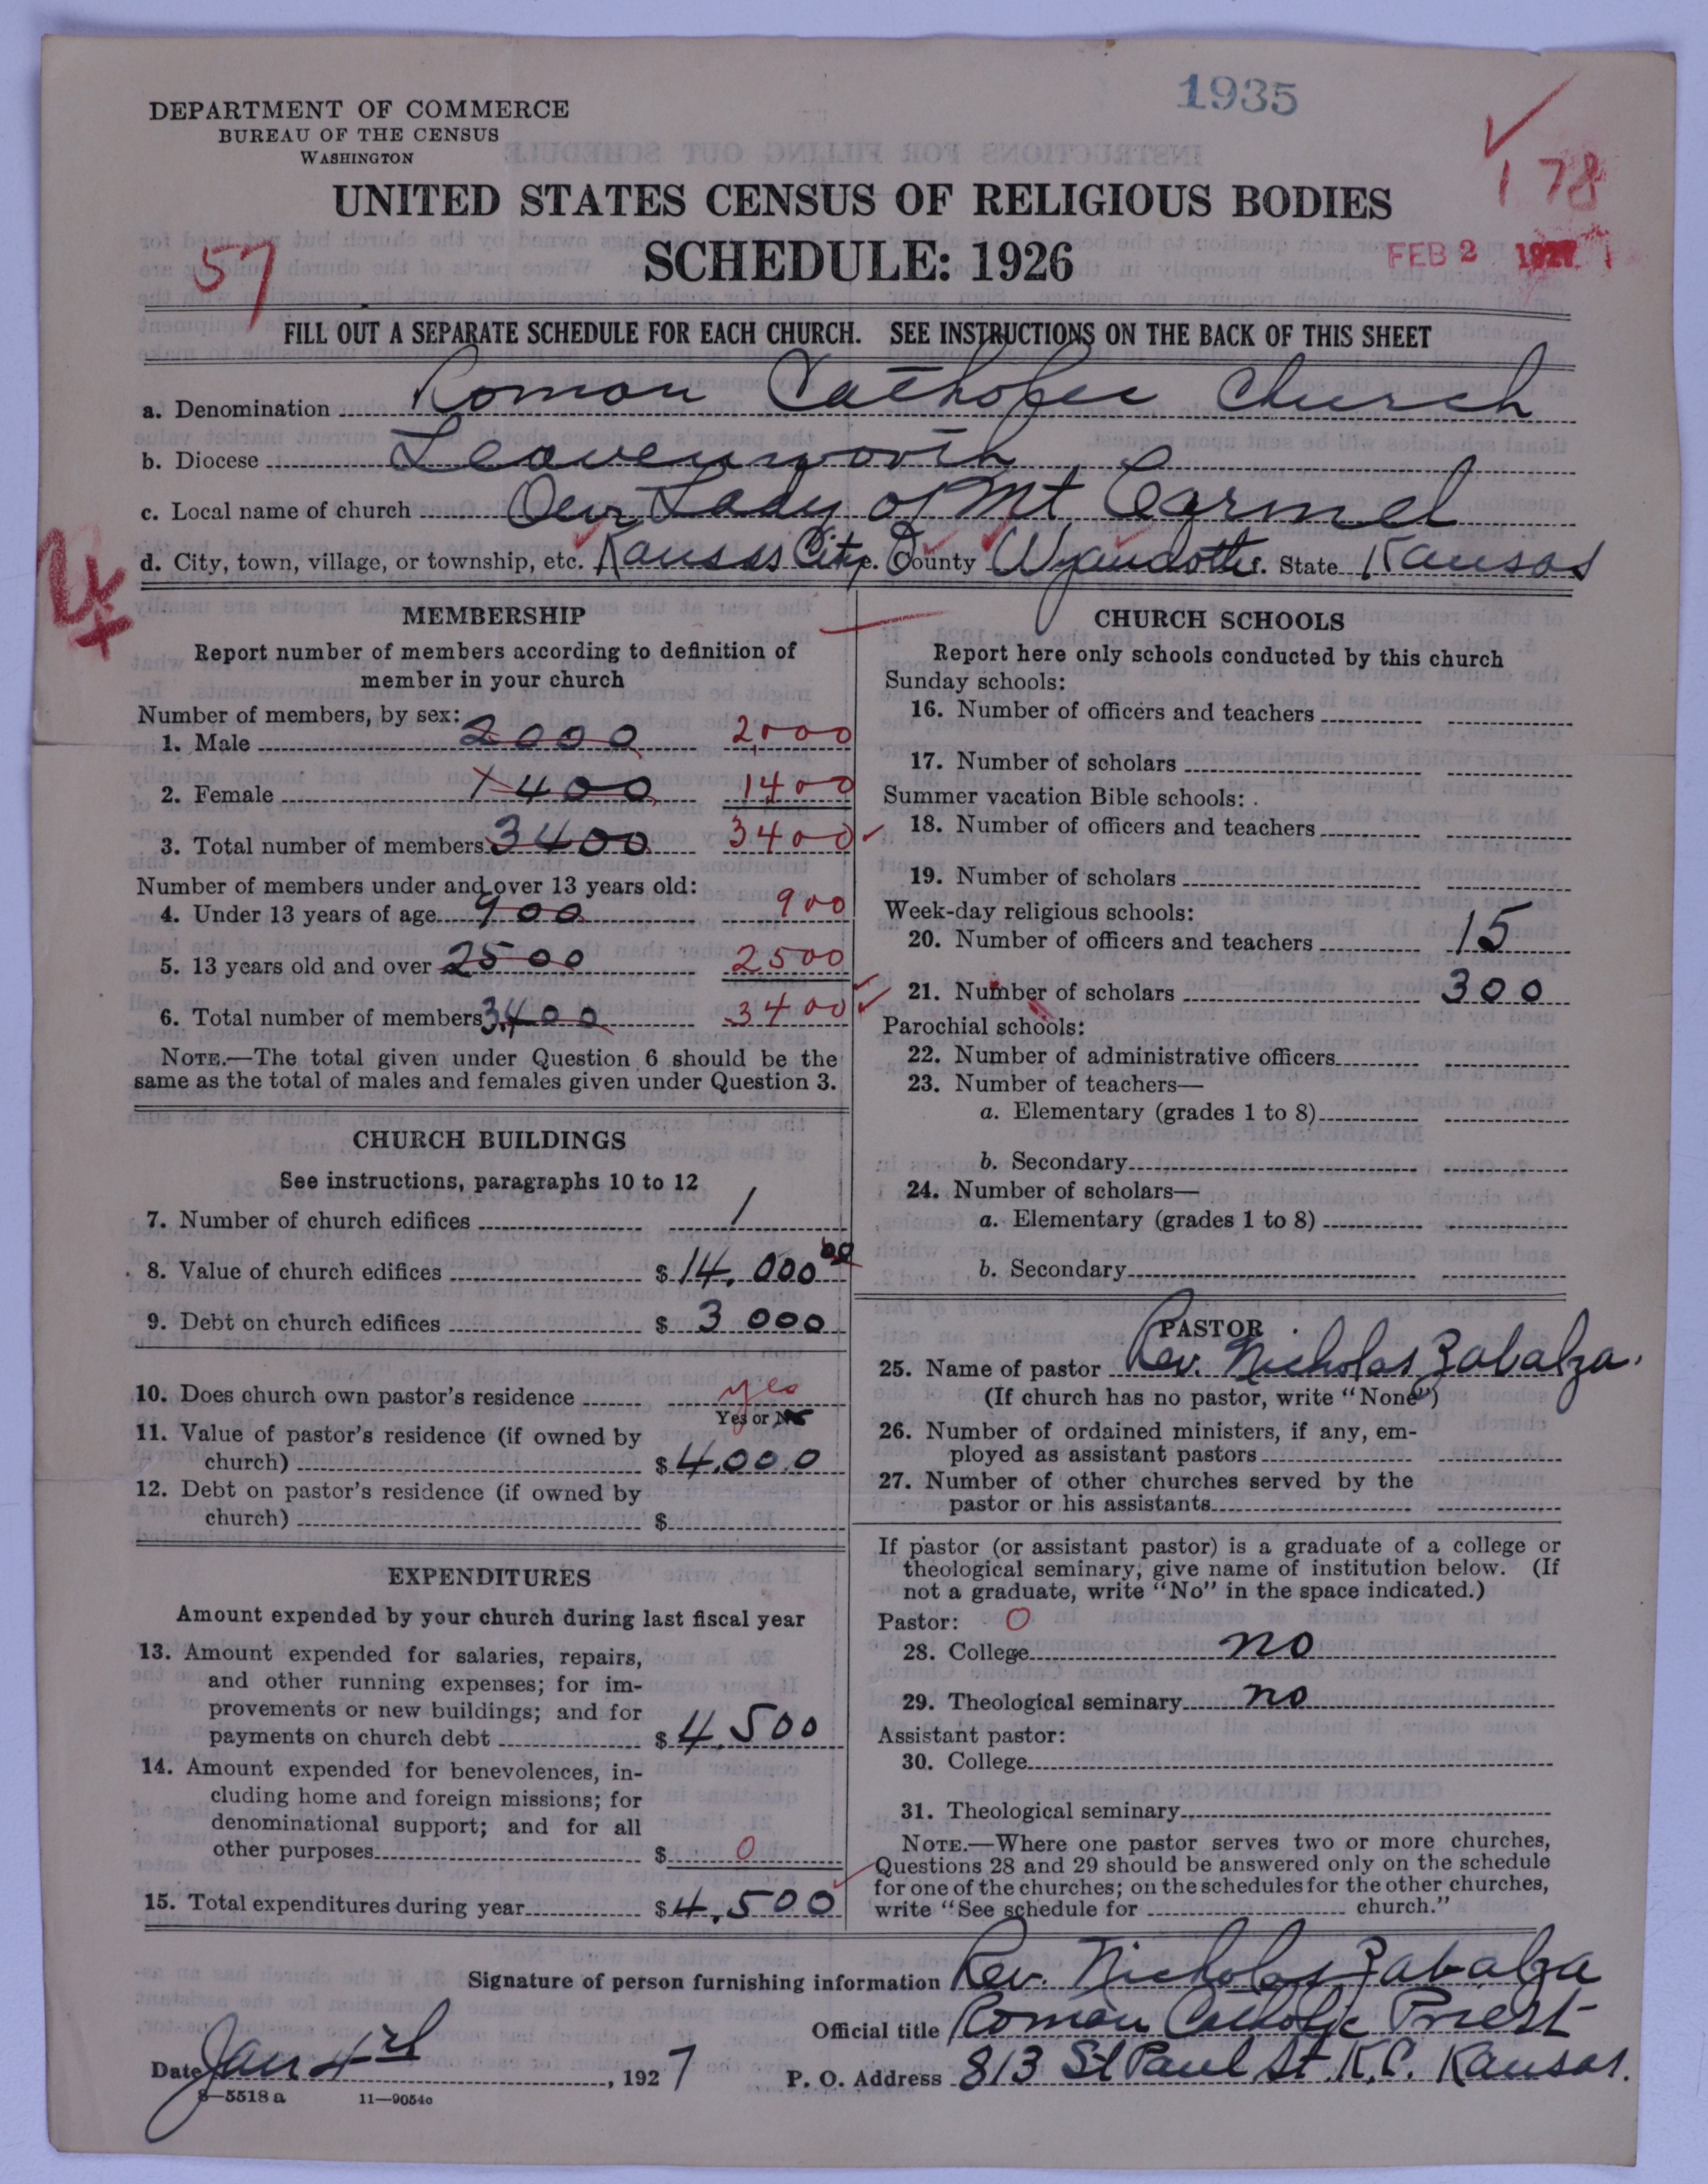 1935
DEPARTMENT OF COMMERCE
BUREAU OF THE CENSUS
WASHINGTON
178
UNITED STATES CENSUS OF RELIGIOUS BODIES
57
SCHEDULE: 1926
FEB 2 1927
FILL OUT A SEPARATE SCHEDULE FOR EACH CHURCH. SEE INSTRUCTIONS ON THE BACK OF THIS SHEET
a. Denomination Roman Catholic Church
b. Diocese Leavenworth
c. Local name of church Our Lady of Mt Carmel
d. City, town, village, or township, etc. Kansas City. County Wyandotte. State Kansas
MEMBERSHIP
Report number of members according to definition of
member in your church
Number of members, by sex:
1. Male 2000 2000
2. Female 1400 1400
3. Total number of members 3400 3400
Number of members under and over 13 years old:
4. Under 13 years of age 900 900
5. 13 years old and over 2500 2500
6. Total number of members 3,400 3400
NOTE.—The total given under Question 6 should be the
same as the total of males and females given under Question 3.
CHURCH BUILDINGS
See instructions, paragraphs 10 to 12
7. Number of church edifices 1
8. Value of church edifices $ 14,000 00
9. Debt on church edifices $ 3 000
10. Does church own pastor's residence yes
Yes or No
11. Value of pastor's residence (if owned by
church) $ 4,000
12. Debt on pastor's residence (if owned by
church) $
EXPENDITURES
Amount expended by your church during last fiscal year
13. Amount expended for salaries, repairs,
and other running expenses; for im-
provements or new buildings; and for
payments on church debt $ 4,500
14. Amount expended for benevolences, in-
cluding home and foreign missions; for
denominational support; and for all
other purposes $ 0
15. Total expenditures during year $ 4,500
CHURCH SCHOOLS
Report here only schools conducted by this church
Sunday schools:
16. Number of officers and teachers
17. Number of scholars
Summer vacation Bible schools:
18. Number of officers and teachers
19. Number of scholars
Week-day religious schools:
20. Number of officers and teachers 15
21. Number of scholars 300
Parochial schools:
22. Number of administrative officers
23. Number of teachers—
a. Elementary (grades 1 to 8)
b. Secondary
24. Number of scholars—
a. Elementary (grades 1 to 8)
b. Secondary
PASTOR
25. Name of pastor Rev. Nicholas Zabalza.
(If church has no pastor, write "None")
26. Number of ordained ministers, if any, em-
ployed as assistant pastors
27. Number of other churches served by the
pastor or his assistants
If pastor (or assistant pastor) is a graduate of a college or
theological seminary, give name of institution below. (If
not a graduate, write "No" in the space indicated.)
Pastor: 0
28. College no
29. Theological seminary no
Assistant pastor:
30. College
31. Theological seminary
NOTE.—Where one pastor serves two or more churches,
Questions 28 and 29 should be answered only on the schedule
for one of the churches; on the schedules for the other churches,
write "See schedule for church."
Signature of person furnishing information Rev. Nicholas Zabalza
Official title Roman Catholic Priest
Date Jan 4rd, 1927 P. O. Address 813 St Paul St. K.C. Kansas.
8—5518a 11—9054o